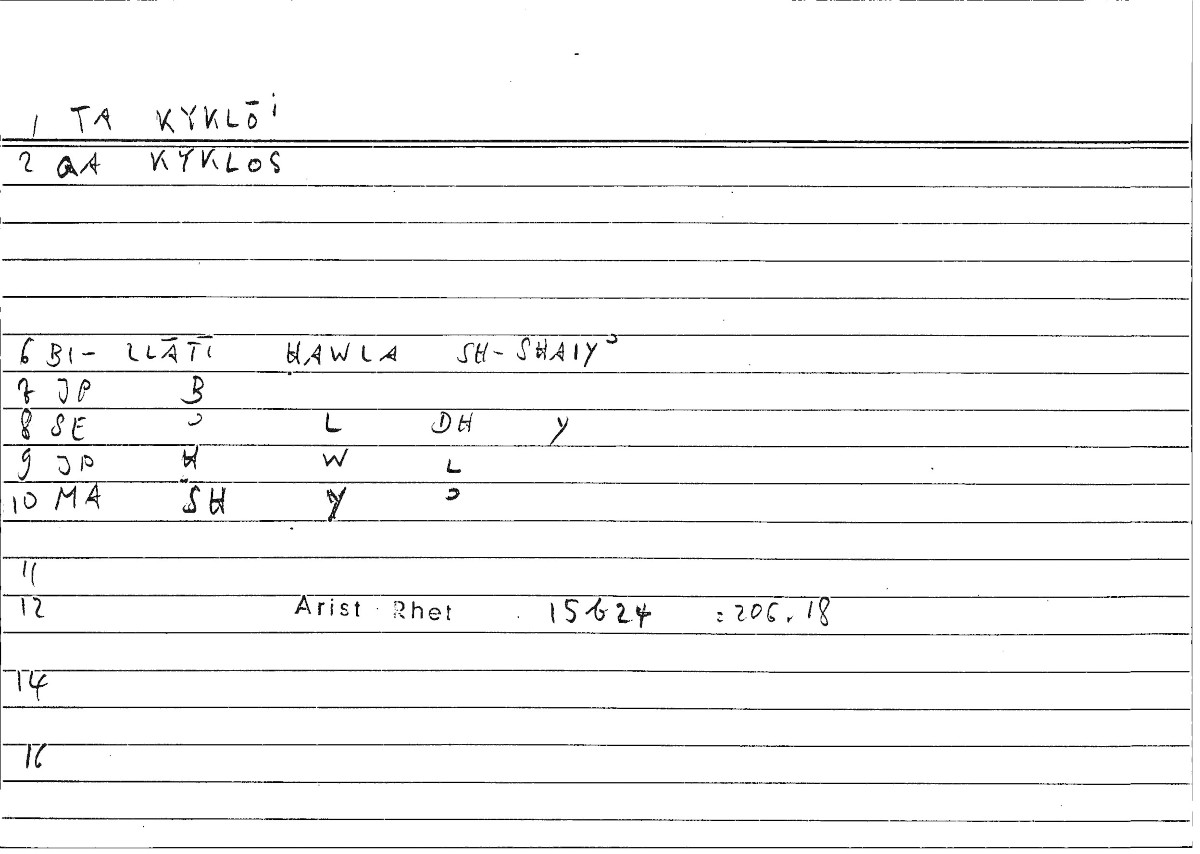 1 TA KYKLŌⁱ
2 QA KYKLOS
6 BI- LLĀTĪ ḤAWLA SH-SHAIYʾ
7 JP B
8 SE ʾ L DH Y
9 JP Ḥ W L
10 MA SH Y ʾ
11
12 Arist Rhet 15b24 =206.18
14
16